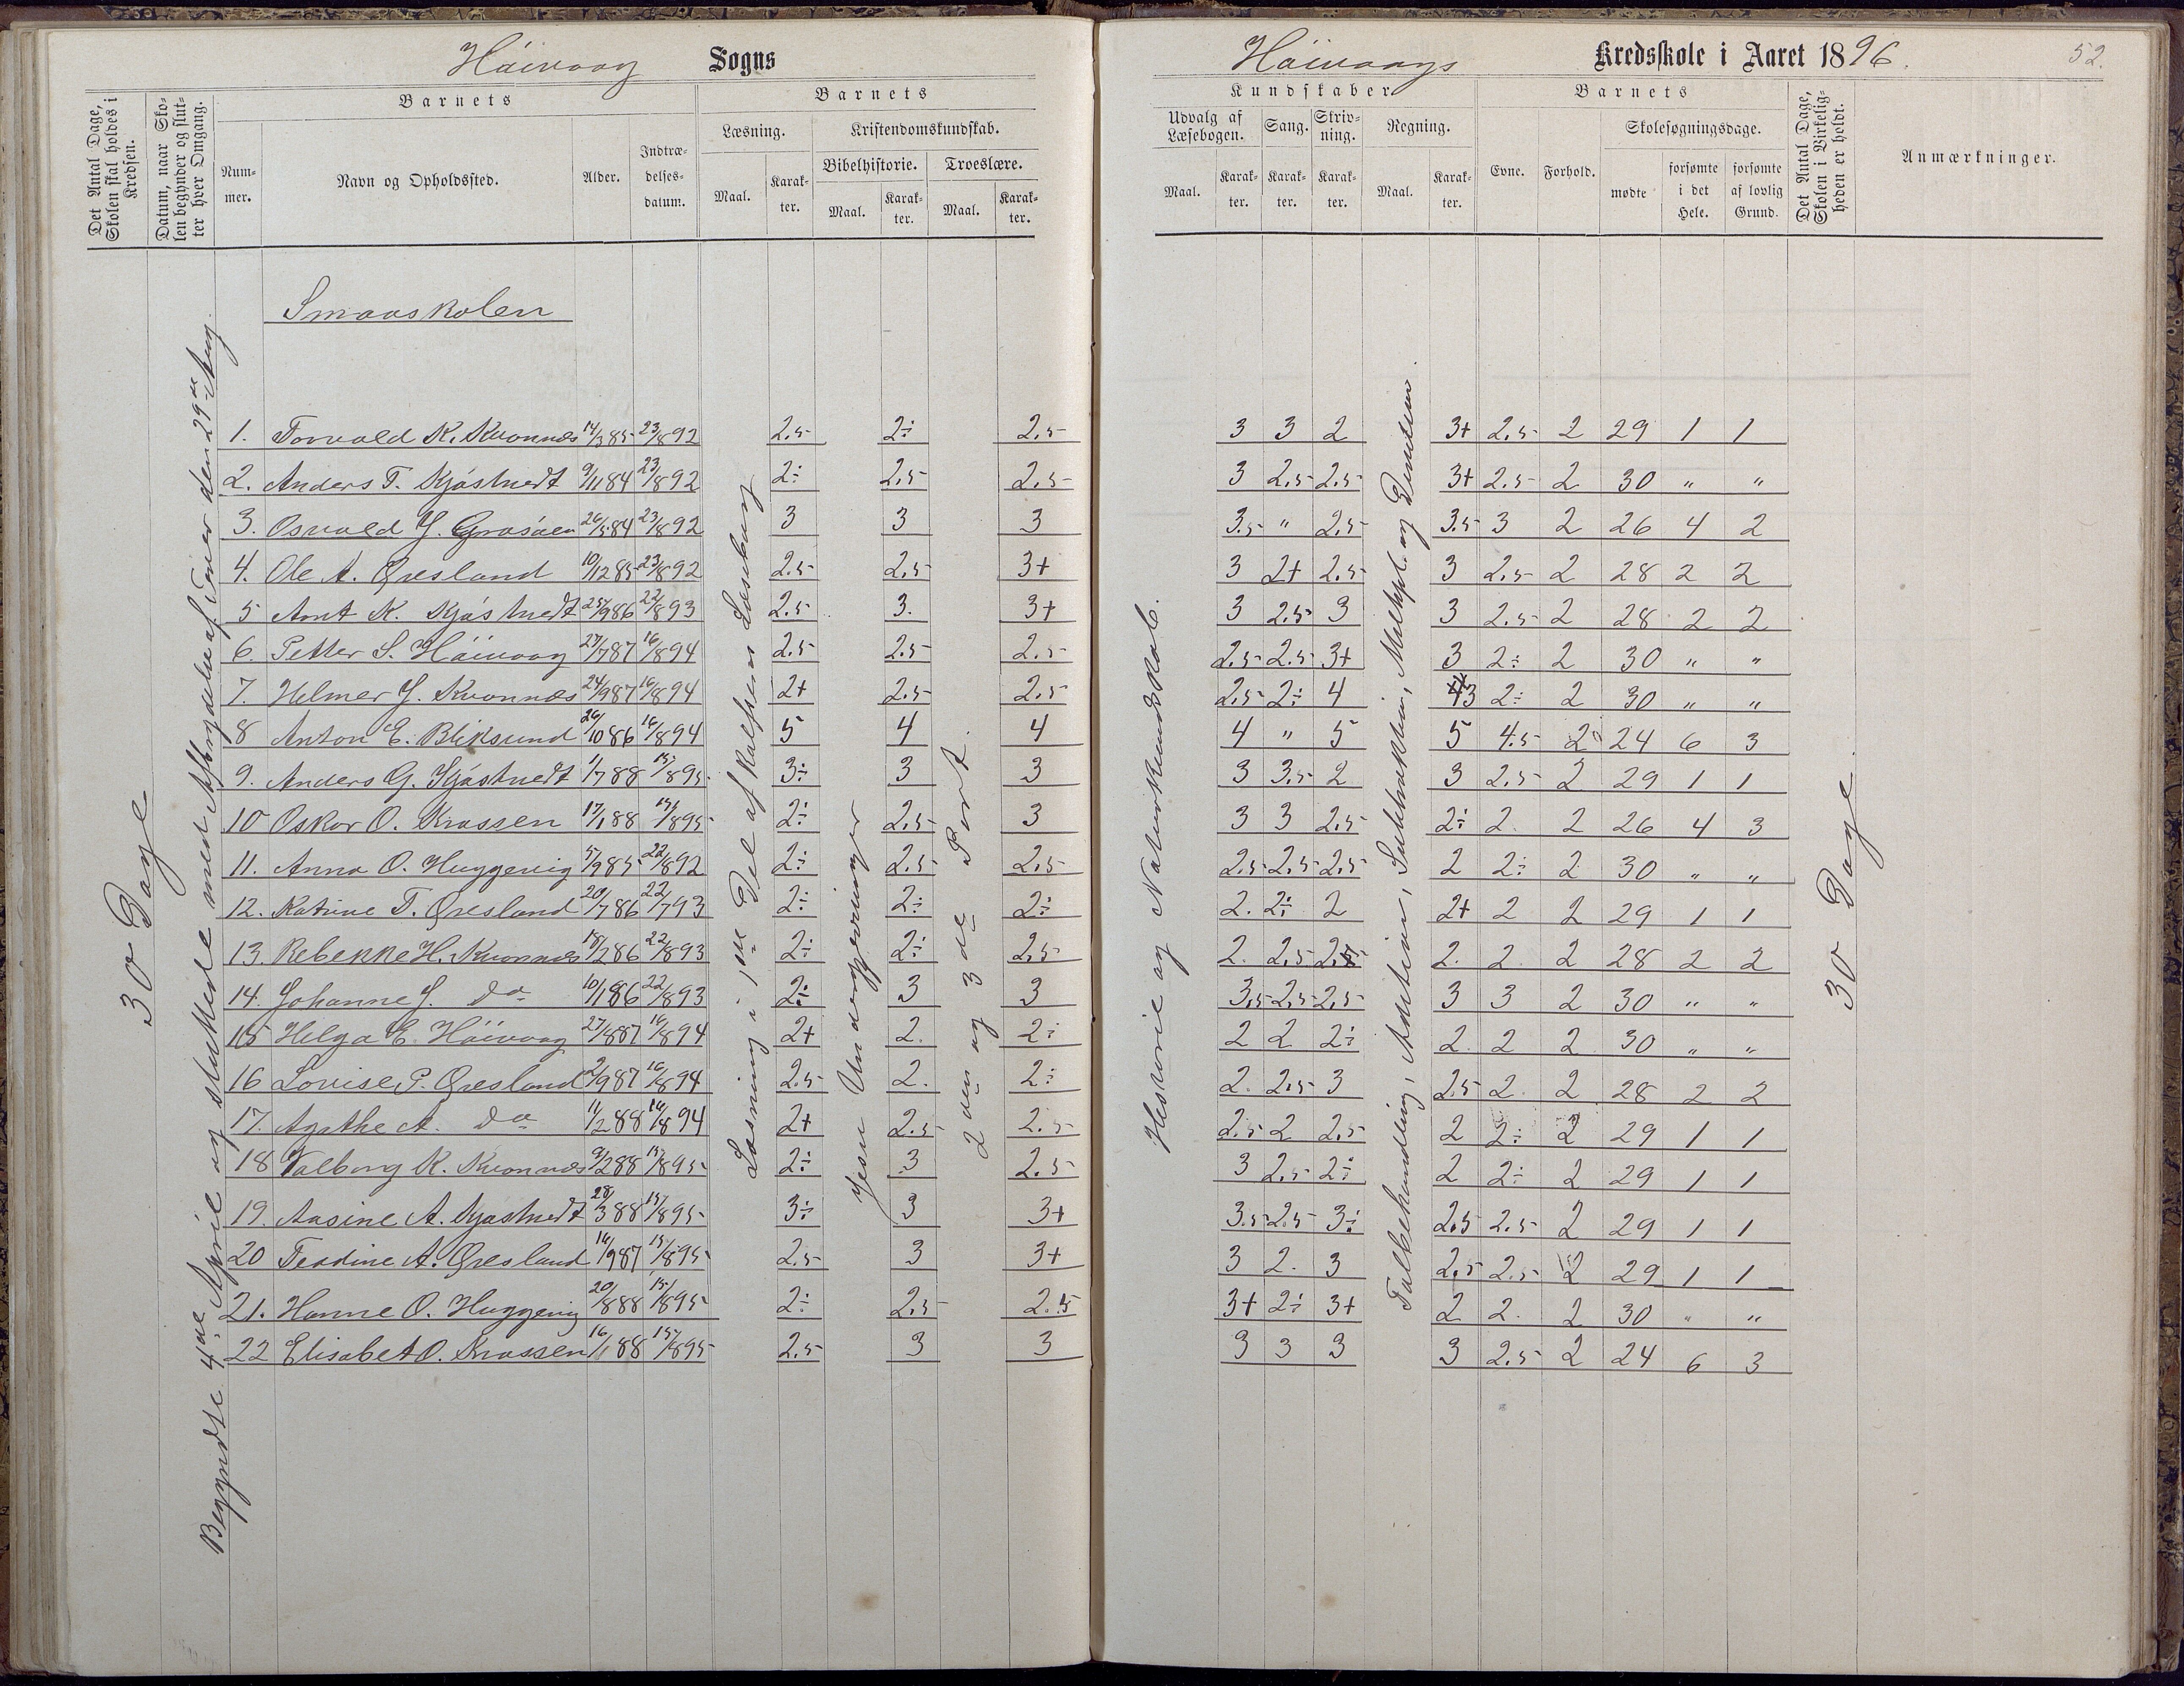 Höivaag Sogns
Det Antal Dage, Skolen skal holdes i Kredsen.
Datum, naar Skolen begynder og slutter hver Omgang.
Barnets
Nummer.
Navn og Opholdssted.
Alder.
Indtrædelsesdatum.
Barnets
Læsning.
Maal.
Karakter.
Kristendomskundskab.
Bibelhistorie.
Maal.
Karakter.
Troeslære.
Maal.
Karakter.
Smaaskolen
30 Dage
Begyndte 4de April og sluttede med Afbrydelse af Ferier den 29de Aug.
Læsning i 1ste Del af Rolfsens Læsebog
Jesu Undergjerninger
2den og 3de Part.
1. Torvald K. Kvannæs 14/3 85 23/8 92 2.5 2÷ 2.5
2. Anders T. Kjøstvedt 9/11 84 23/8 92 2÷ 2.5 2.5
3. Osvald J. Grasåen 26/5 84 23/8 92 3 3 3
4. Ole A. Øresland 10/12 85 23/8 92 2.5 2.5 3+
5 Arnt K. Kjøstvedt 25/9 86 22/8 93 2.5 3. 3+
6. Petter S. Höivaag 27/7 87 16/8 94 2.5 2.5 2.5
7. Helmer J. Kvannæs 24/9 87 16/8 94 2+ 2.5 2.5
8 Anton E. Bliksund 26/10 86 16/8 94 5 4 4
9. Anders G. Kjøstvedt 1/7 88 15/8 95 3÷ 3 3
10 Oskar O. Krossen 17/1 88 15/8 95 2÷ 2.5 3
11. Anna O. Huggevig 5/9 85 22/8 92 2÷ 2.5 2.5
12. Katrine T. Øresland 20/7 86 22/7 93 2÷ 2÷ 2÷
13. Rebekke H. Kvannæs 18/2 86 22/8 93 2÷ 2÷ 2.5
14. Johanne J. do 10/1 86 22/8 93 2÷ 3 3
15 Helga E. Höivaag 27/8 87 16/8 94 2+ 2. 2÷
16 Lovise P. Øresland 2/9 87 16/8 94 2.5 2. 2÷
17. Agathe A. do 11/2 88 16/8 94 2+ 2.5 2.5
18 Valborg K. Kvannæs 9/2 88 15/8 95 2÷ 3 2.5
19. Aasine A. Kjøstvedt 28/3 88 15/8 95 3÷ 3 3+
20 Terdine A. Øresland 16/9 87 15/8 95 2.5 3 3+
21. Hanne O. Huggevig 20/8 88 15/8 95 2÷ 2.5 2.5
22 Elisabet O. Krossen 16/1 88 15/8 95 2.5 3 3
Höivaags Kredsskole i Aaret 1896. 52.
Kundskaber
Udvalg af Læsebogen.
Maal.
Karakter.
Sang.
Karakter.
Skrivning.
Karakter.
Regning.
Maal.
Karakter.
Barnets
Evne.
Forhold.
Skolesøgningsdage.
mødte
forsømte i det Hele.
forsømte af lovlig Grund.
Det Antal Dage, Skolen i Virkeligheden er holdt.
Anmærkninger.
Historie og Naturkundskab.
Talbehandling, Addition, Subtraktion, Multipl. og Division.
30 Dage.
3 3 2 3+ 2.5 2 29 1 1
3 2.5 2.5 3+ 2.5 2 30 " "
3.5 " 2.5 3.5 3 2 26 4 2
3 2+ 2.5 3 2.5 2 28 2 2
3 2.5 3 3 2.5 2 28 2 2
2.5 2.5 3+ 3 2÷ 2 30 " "
2.5 2÷ 4 3 2÷ 2 30 " "
4 " 5 5 4.5 2 24 6 3
3 3.5 2 3 2.5 2 29 1 1
3 3 2.5 2÷ 2. 2 26 4 3
2.5 2.5 2.5 2 2÷ 2 30 " "
2. 2÷ 2 2+ 2 2 29 1 1
2. 2.5 2.5 2. 2. 2 28 2 2
3.5 2.5 2.5 3 3 2 30 " "
2 2 2÷ 2. 2 2 30 " "
2. 2.5 3 2.5 2. 2 28 2 2
2.5 2 2.5 2 2÷ 2 29 1 1
3 2.5 2÷ 2 2÷ 2 29 1 1
3.5 2.5 3÷ 2.5 2.5 2 29 1 1
3 2. 3 2.5 2.5 2 29 1 1
3+ 2÷ 3+ 2 2. 2 30 " "
3 3 3 3 2.5 2 24 6 3